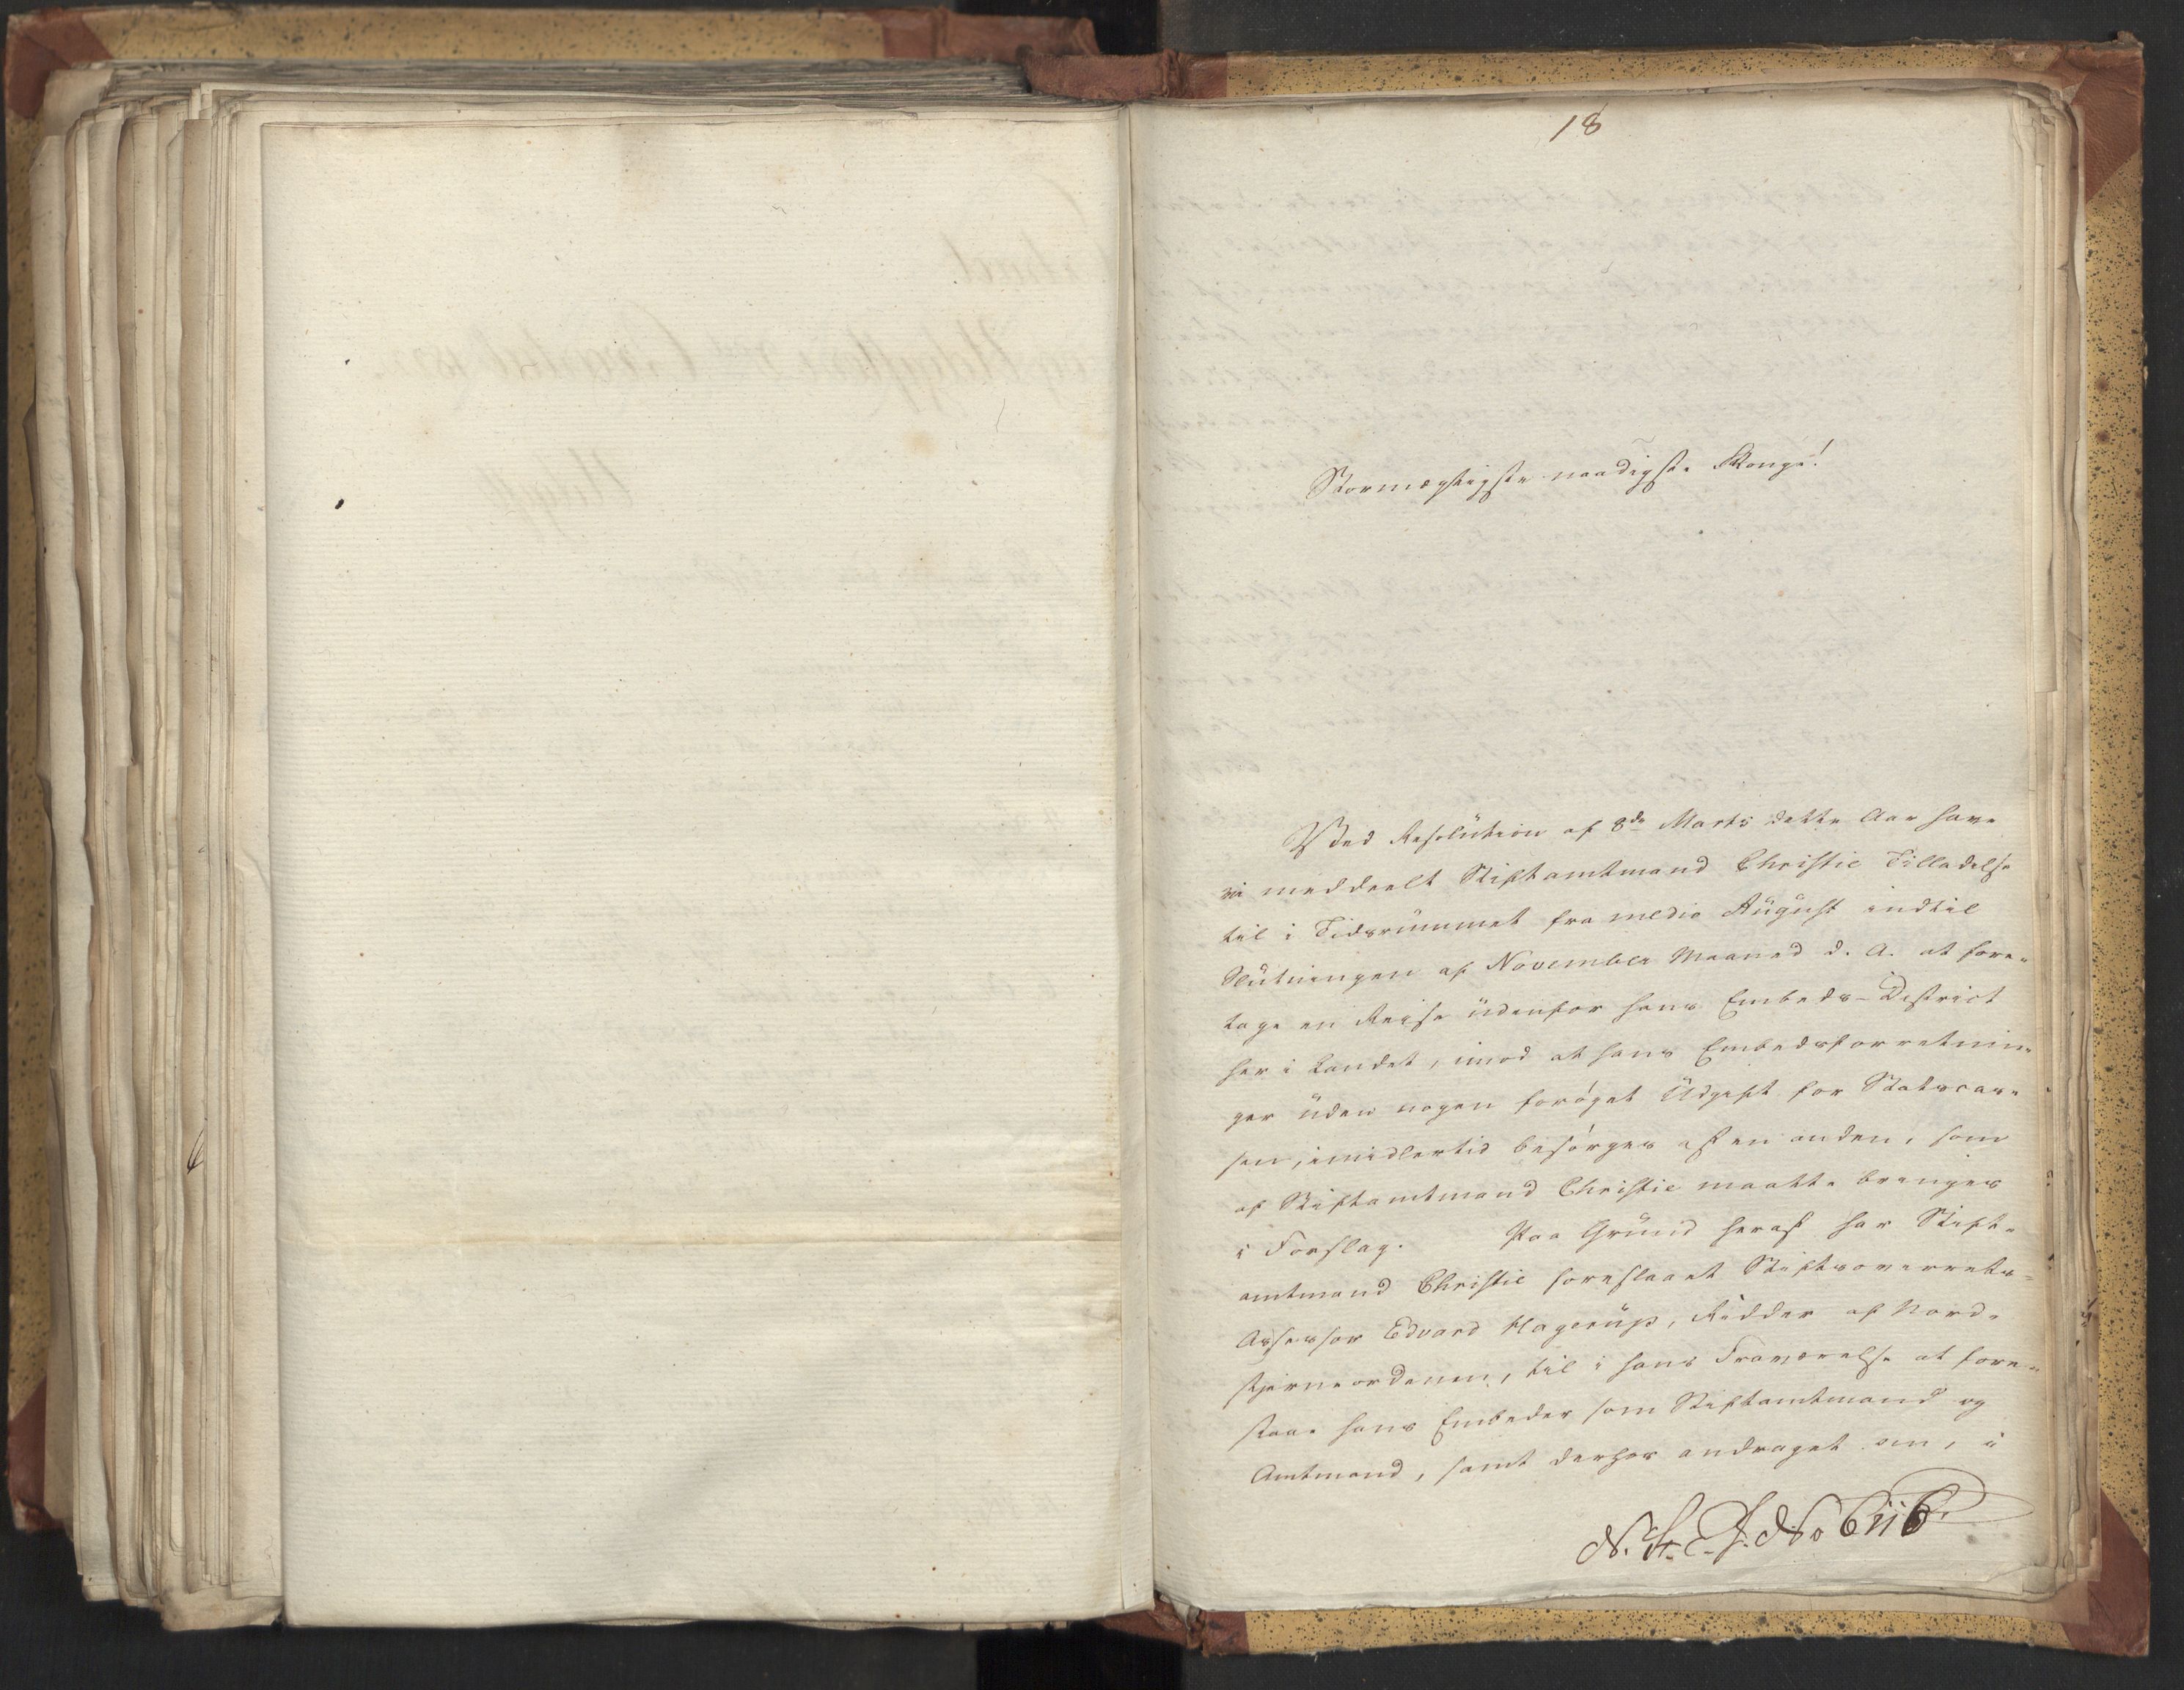 18
Stormægtigste naadigste Konge!
Ved Resolution af 8de Marts dette Aar have
vi meddeelt Stiftamtmand Christie Tilladelse
til i Tidsrummet fra medio August indtil
Slutningen af November Maaned d. A. at fore-
tage en Reise udenfor hans Embeds-District
her i Landet, imod at hans Embedsforretnin-
ger uden nogen forøget Udgift for Statscas-
sen, imidlertid besørges af en anden, som
af Stiftamtmand Christie maatte bringes
i Forslag. Paa Grund heraf har Stift-
amtmand Christie foreslaaet Stiftsoverrets-
Assessor Edvard Hagerup, Ridder af Nord-
stjerneordenen, til i hans Fraværelse at fore-
staae hans Embeder som Stiftamtmand og
Amtmand, samt derhos andraget om, i
No 6116